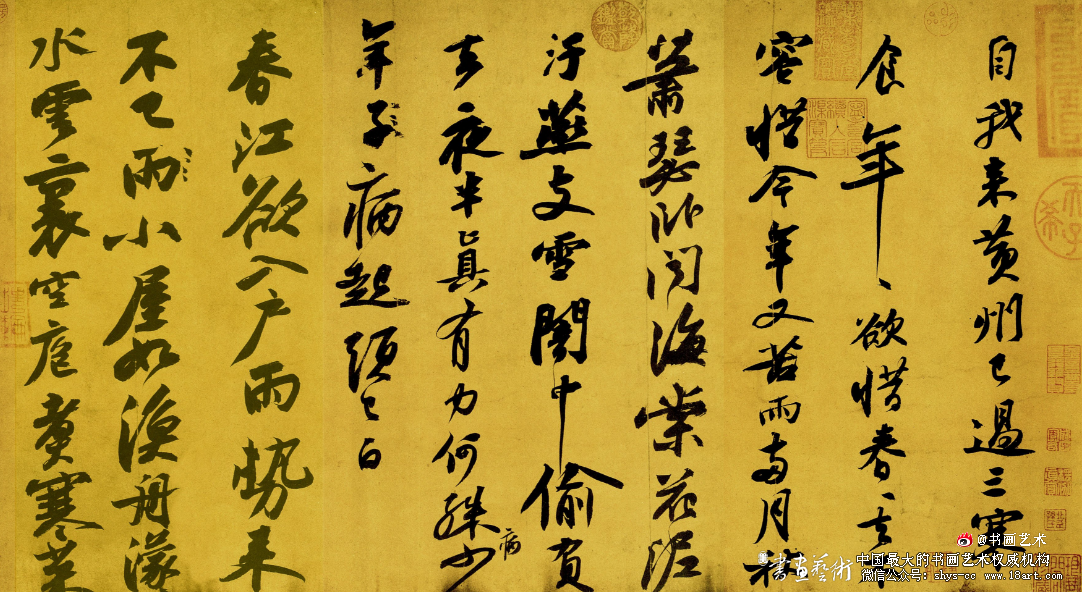 自我來黄州已過三寒
食年〻欲惜春〻去
容惜今年又苦雨兩月秋
蕭瑟卧聞海棠花泥
汙燕支雪闇中偷負
去夜半真有力何殊少
病
年子病起頭已白
春江欲入户雨勢来
不已雨小屋如漁舟濛
水雲裏空庖煮寒菜
@书画艺术
書畫藝術
中国最大的书画艺术权威机构
微信公众号：shys-cc www.18art.com